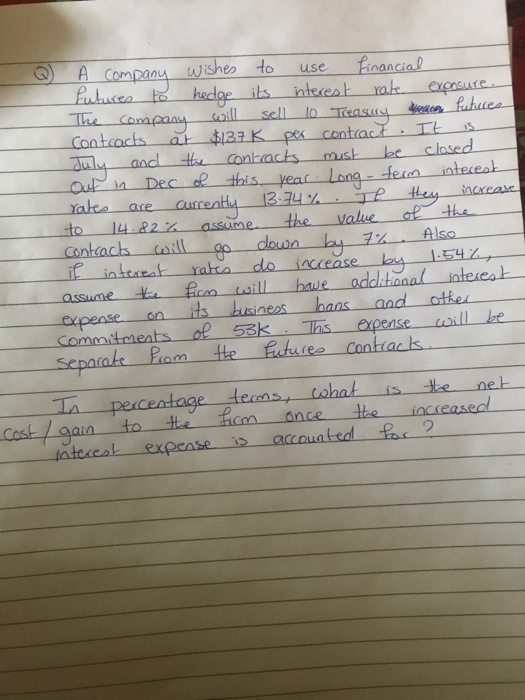 Q) A company wishes to use financial
futures to hedge its interest rate exposure.
The company will sell 10 Treasury futures
contracts at $137K per contract. It is
July and the contracts must be closed
out in Dec of this year. Long-term interest
rates are currently 13.74%. If they increase
to 14.82% assume the value of the
contracts will go down by 7%. Also
if interest rates do increase by 1.54%,
assume the firm will have additional interest
expense on its business loans and other
commitments of 53K. This expense will be
separate from the futures contracts.
In percentage terms, what is the net
cost/gain to the firm once the increased
interest expense is accounted for?